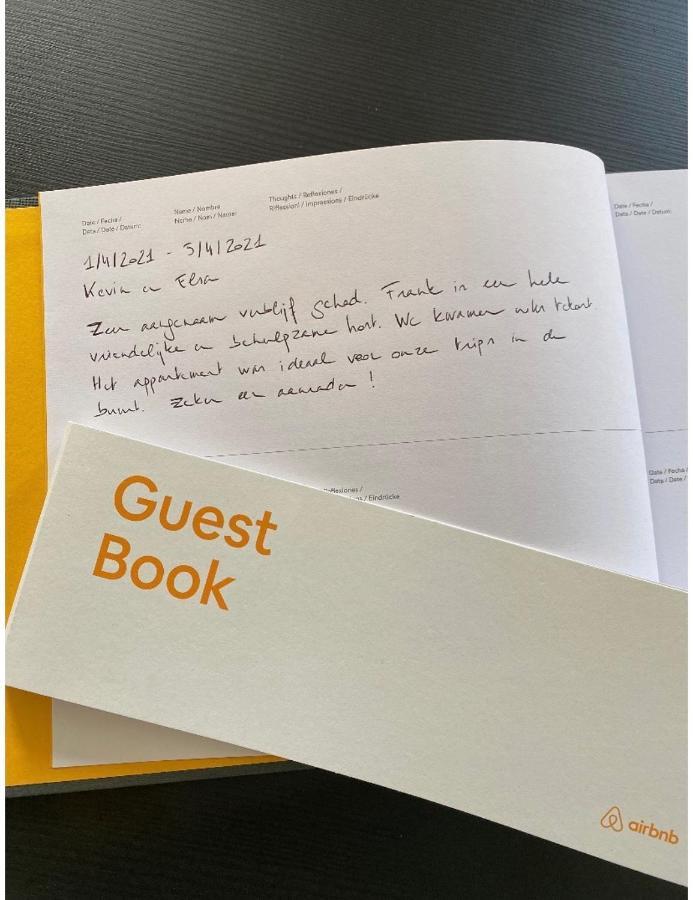 Date / Fecha /
Data / Date / Datum:
Name / Nombre
Nome / Nom / Name:
Thoughts / Reflexiones /
Riflessioni / Impressions / Eindrücke
Date / Fecha /
Data / Date / Datum:
1/4/2021 - 5/4/2021
Kevin en Elsa
Zeer aangenaam verblijf gehad. Frank is een hele
vriendelijke en behulpzame host. We kwamen niks tekort
Het appartement was ideaal voor onze trips in de
buurt. Zeker een aanrader !
Reflexiones /
/ Eindrücke
Date / Fecha /
Data / Date /
Guest
Book
airbnb